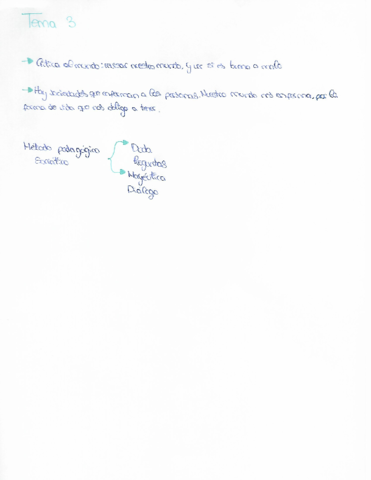 Tema 3
→ Crítica al mundo: mirar nuestro mundo, y ver si es bueno o
→ Hay sociedades que enferman a las personas. Nuestro mundo nos enferma, por la
forma de vida que nos obliga a tener.
Método pedagógico
Socrático
Duda
Preguntas
Mayéutica
Diálogo